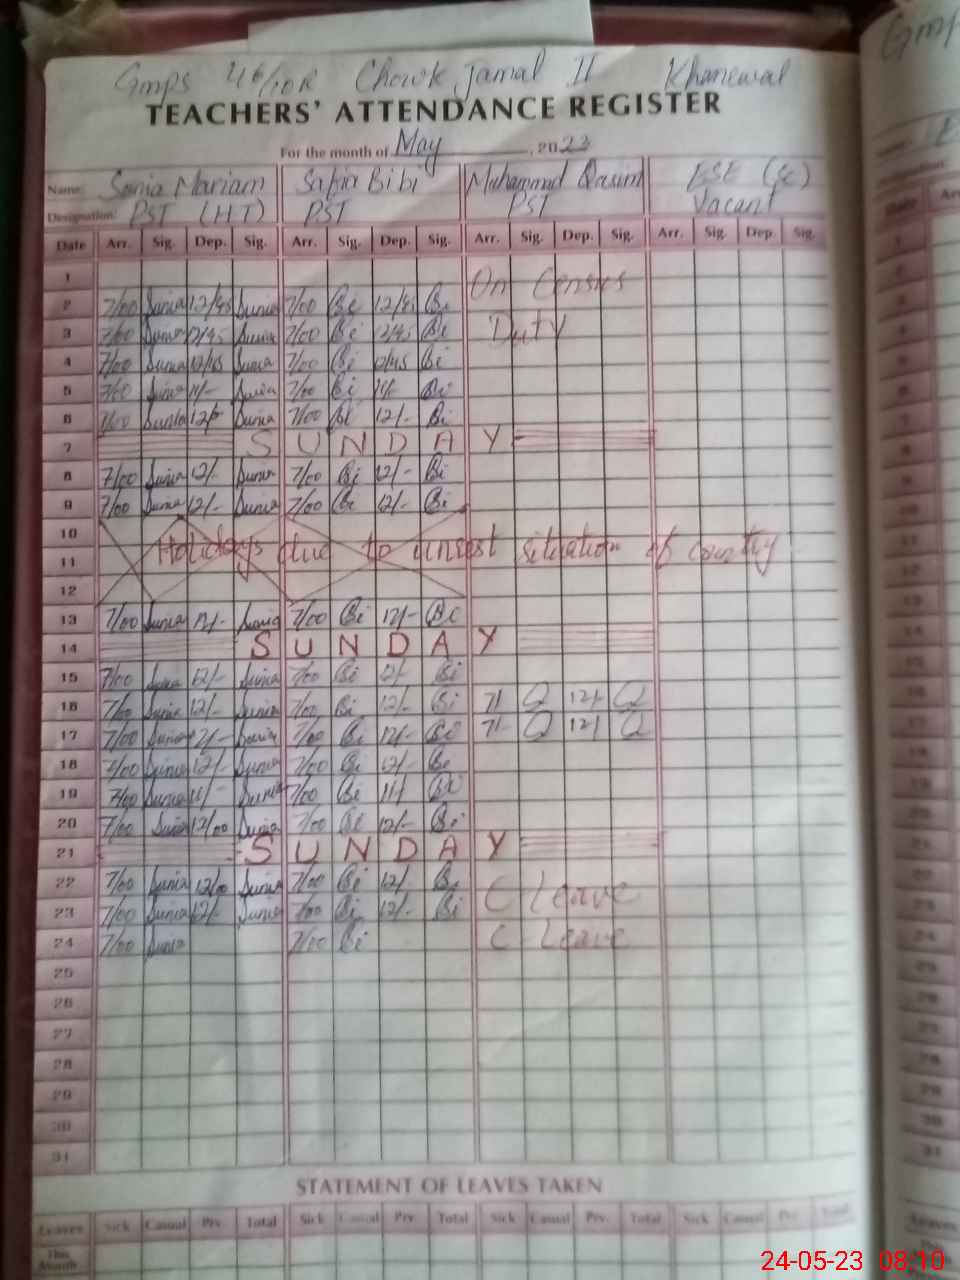 Gmps 46/10R Chowk Jamal II Khanewal
TEACHERS' ATTENDANCE REGISTER
For the month of May, 2023
Name: Sonia Mariam Safia Bibi Muhammad Qasim ESE (Sc)
Designation: PST (HT) PST PST Vacant
Date Arr. Sig. Dep. Sig. Arr. Sig. Dep. Sig. Arr. Sig. Dep. Sig. Arr. Sig. Dep. Sig.
1 On Census
2 7/00 Sunia 12/45 Sunia 7/00 Bi 12/45 Bi
3 7/00 Sunia 12/45 Sunia 7/00 Bi 12/45 Bi Duty
4 7/00 Sunia 12/45 Sunia 7/00 Bi 12/45 Bi
5 7/00 Sunia 11/- Sunia 7/00 Bi 11/- Bi
6 7/00 Sunia 12/- Sunia 7/00 Bi 12/- Bi
7 SUNDAY
8 7/00 Sunia 12/- Sunia 7/00 Bi 12/- Bi
9 7/00 Sunia 12/- Sunia 7/00 Bi 12/- Bi
10
11 Holidays due to unrest situation of country
12
13 7/00 Sunia 12/- Sunia 7/00 Bi 12/- Bi
14 SUNDAY
15 7/00 Sunia 12/- Sunia 7/00 Bi 12/- Bi
16 7/00 Sunia 12/- Sunia 7/00 Bi 12/- Bi 7/- Q 12/- Q
17 7/00 Sunia 12/- Sunia 7/00 Bi 12/- Bi 7/- Q 12/ Q
18 7/00 Sunia 12/- Sunia 7/00 Bi 12/- Bi
19 7/00 Sunia 11/- Sunia 7/00 Bi 11/ Bi
20 7/00 Sunia 12/00 Sunia 7/00 Bi 12/- Bi
21 SUNDAY
22 7/00 Sunia 12/00 Sunia 7/00 Bi 12/- Bi C Leave
23 7/00 Sunia 12/- Sunia 7/00 Bi 12/- Bi
24 7/00 Sunia 7/00 Bi C Leave
25
26
27
28
29
30
31
STATEMENT OF LEAVES TAKEN
Leaves Sick Casual Prv. Total Sick Casual Prv. Total Sick Casual Prv. Total Sick Casual Prv. Total
This Month
24-05-23 08:10